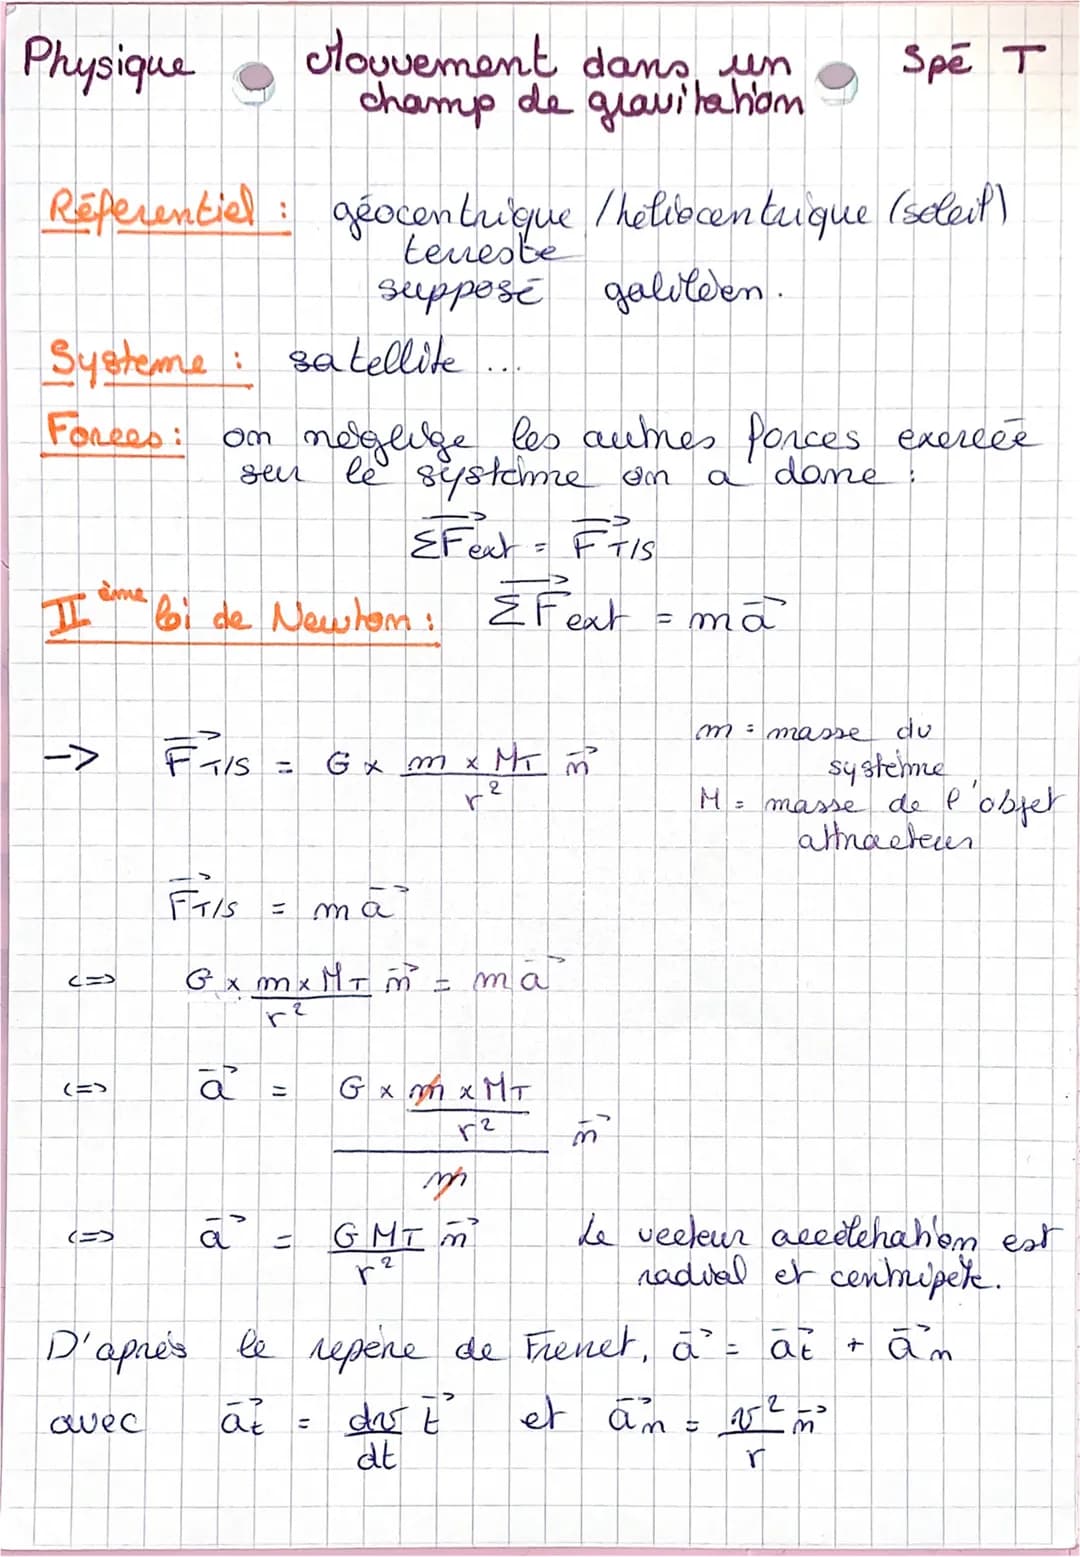 Physique Mouvement dans un Spé T
champ de gravitation
Réferentiel : géocentrique / héliocentrique (soleil)
terreste
supposé galiléen.
Systeme : satellite ...
Forces : on néglige les autres forces exercée
sur le système on a donc :
ΣF⃗ext = F⃗T/S
IIème loi de Newton : ΣF⃗ext = ma⃗
-> F⃗T/S = G x (m x MT)/r² n⃗
m = masse du
système
M = masse de l'objet
attracteur
F⃗T/S = ma⃗
<=> G x (m x MT)/r² n⃗ = ma⃗
<=> a⃗ = (G x (m x MT)/r²)/m n⃗
<=> a⃗ = (GMT)/r² n⃗ Le vecteur accélération est
radial et centripète.
D'après le repère de Frenet, a⃗ = a⃗t + a⃗n
avec a⃗t = dv/dt t⃗ et a⃗n = v²/r n⃗